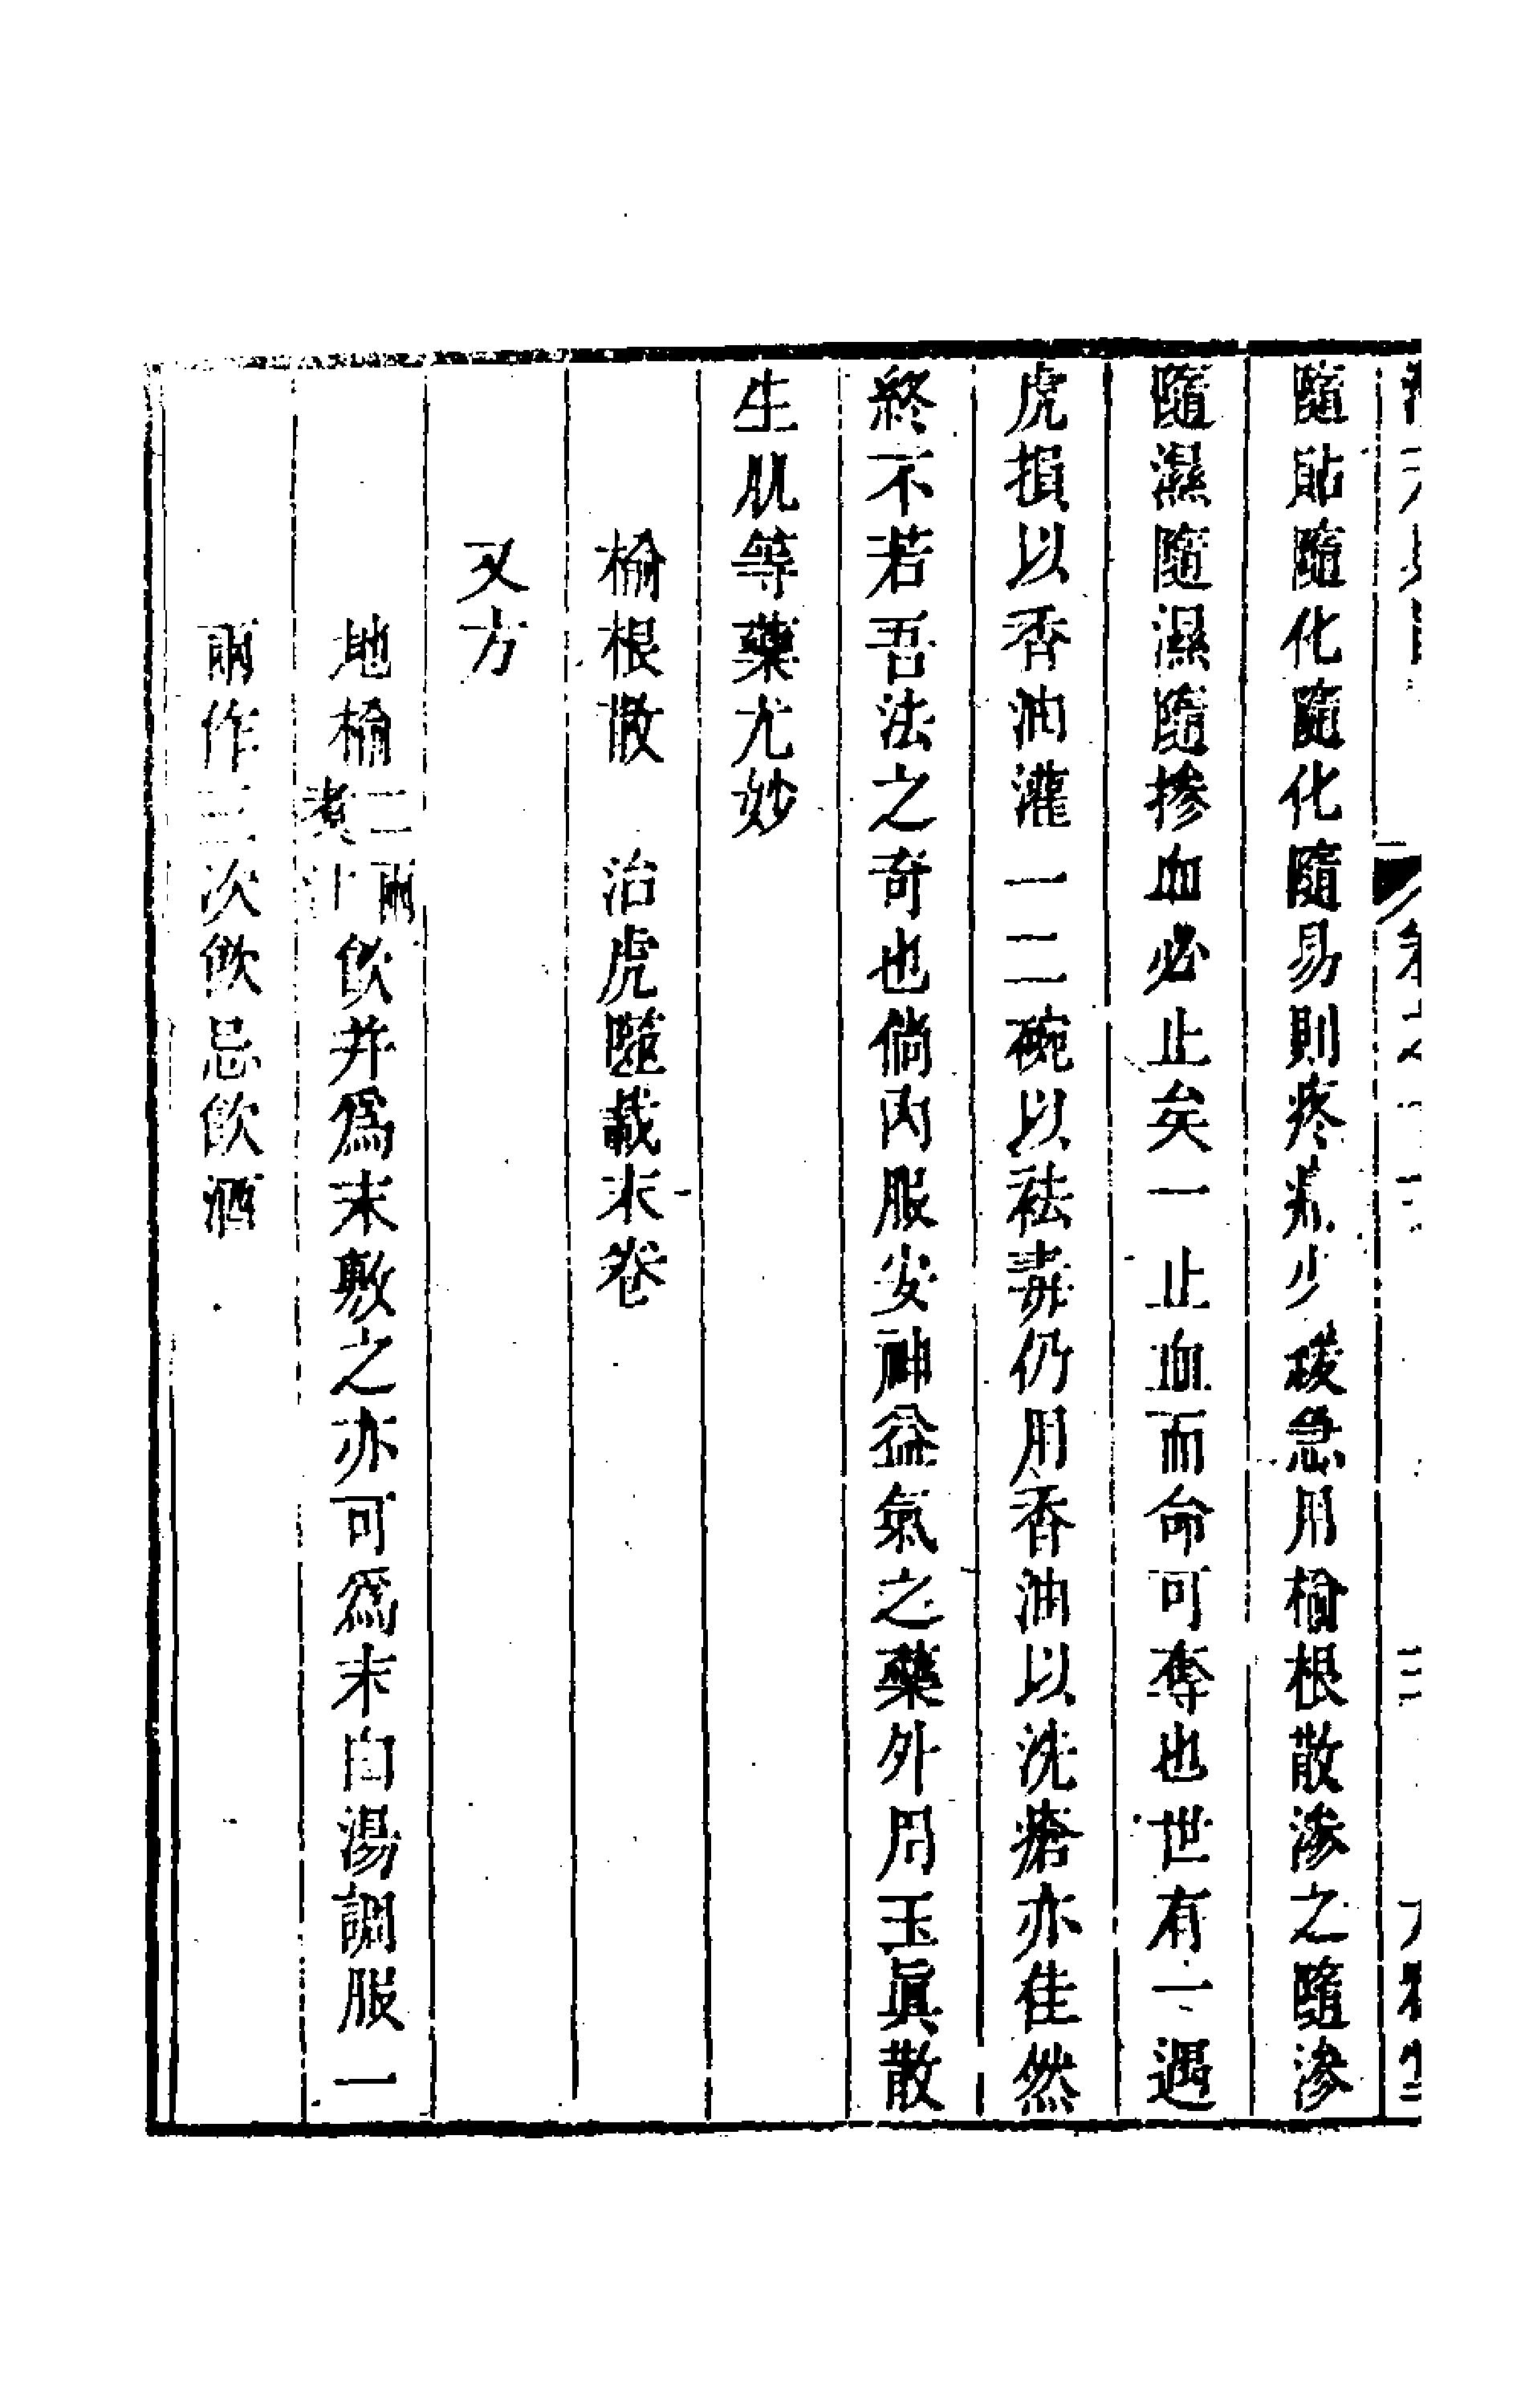 隨貼隨化隨化隨易則疼痛少緩急用榆根散滲之隨滲
隨濕隨濕隨摻血必止矣一止血而命可奪也世有一遇
虎損以香油灌一二碗以祛毒仍用香油以洗瘡亦佳然
終不若吾法之奇也倘內服安神益氣之藥外用玉眞散
生肌等藥尤妙
榆根散　治虎噬載末卷
又方
地榆二兩煑汁飲并爲末敷之亦可爲末白湯調服一
兩作三次飲忌飲酒